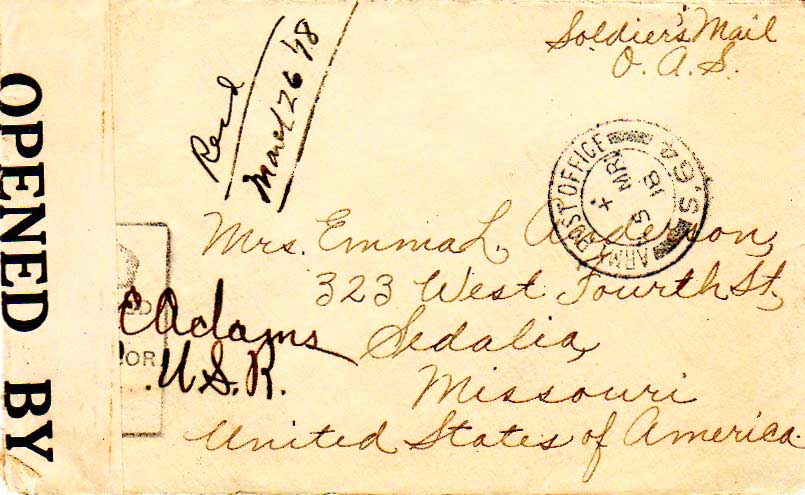 OPENED BY
Soldier's Mail
O. A. S.
Recd
March 26 '18
ARMY POST OFFICE
S. 64
5 MR
18
Mrs. Emma L. Anderson,
323 West Fourth St,
Sedalia,
Missouri
United States of America.
C Adams
U.S.R.
OR